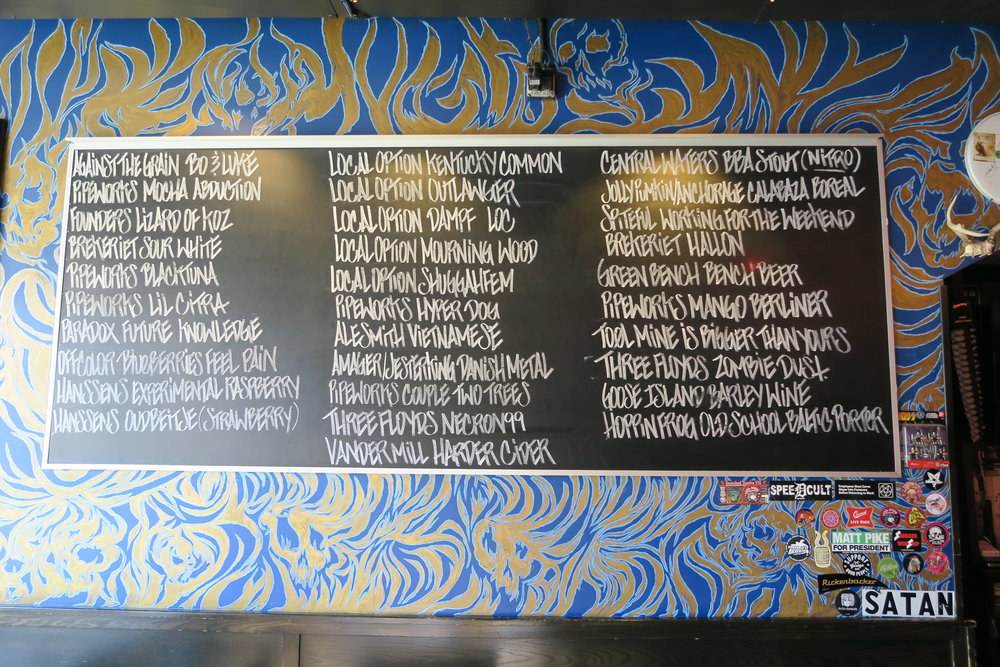 AGAINST THE GRAIN BO & LUKE
PIPEWORKS MOCHA ABDUCTION
FOUNDERS LIZARD OF KOZ
BREKERIET SOUR WHITE
PIPEWORKS BLACKTUNA
PIPEWORKS LIL CITRA
PARADOX FUTURE KNOWLEDGE
OFFCOLOR BLOOBERRIES FEEL PAIN
HANSSENS EXPERIMENTAL RASPBERRY
HANSSENS OUDBEITJE (STRAWBERRY)
LOCAL OPTION KENTUCKY COMMON
LOCAL OPTION OUTLAWGER
LOCAL OPTION DAMPF LOC
LOCAL OPTION MOURNING WOOD
LOCAL OPTION SHUGGAHFEM
PIPEWORKS HYPER DOG
ALESMITH VIETNAMESE
AMAGER/JESTERKING DANISH METAL
PIPEWORKS COUPLE TWO TREES
THREE FLOYDS NECRON 99
VANDER MILL HARDER CIDER
CENTRAL WATERS BBA STOUT (NITRO)
JOLLY PUMPKIN/ANCHORAGE CALABAZA BOREAL
SPITEFUL WORKING FOR THE WEEKEND
BREKERIET HALLON
GREEN BENCH BENCH BEER
PIPEWORKS MANGO BERLINER
TOOL MINE IS BIGGER THAN YOURS
THREE FLOYDS ZOMBIE DUST
GOOSE ISLAND BARLEY WINE
HOPPIN FROG OLD SCHOOL BALTIC PORTER
SPEEDCULT
Employees Must Carve
Slayer Into Forearms
Before Returning to Work
MATT PIKE
FOR PRESIDENT
SUPPORT
Rickenbacker
SATAN